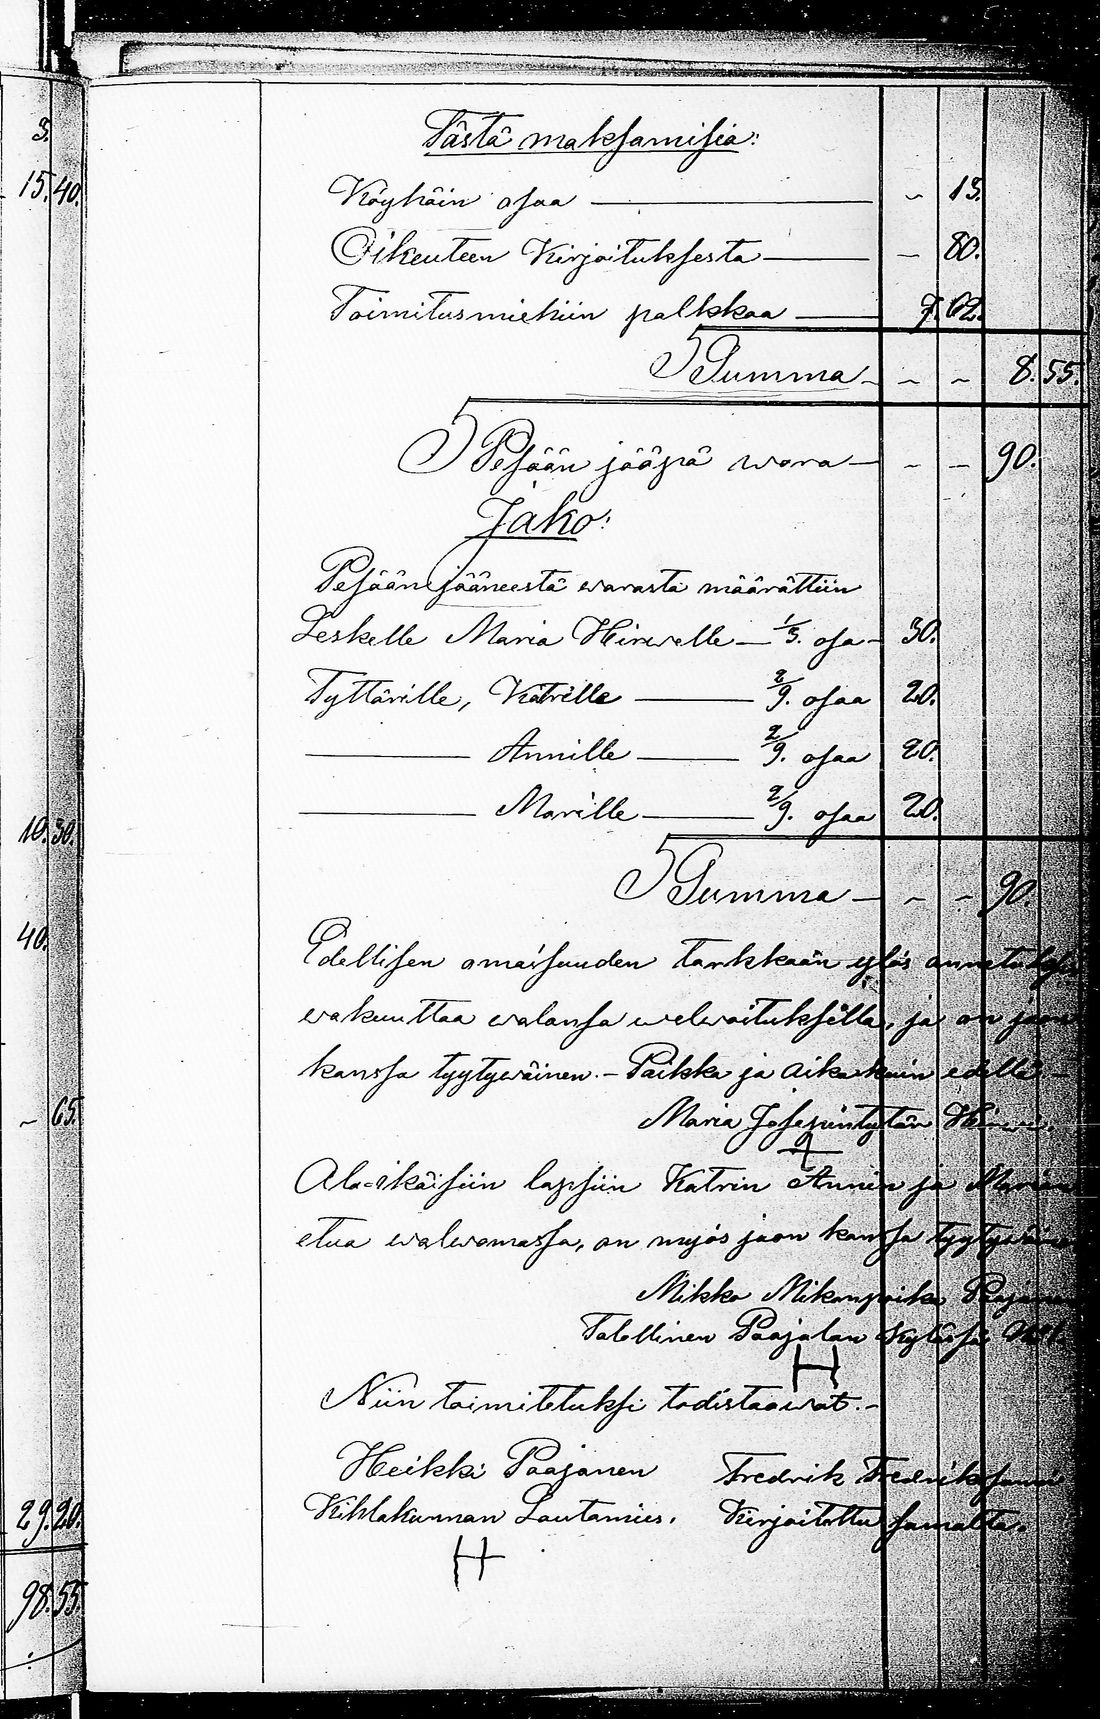 3.
15. 40.
10. 30.
40.
~ 65.
29. 20.
98. 55.
Tästä maksamisia:
Köyhäin osaa ~ 13.
Oikeuteen Kirjoituksesta ~ 80.
Toimitusmiehiin palkkaa 7. 62.
Summa ~ ~ 8. 55.
Pesään jääpä wara ~ ~ 90.
Jako:
Pesään jääneestä warasta määrättiin
Leskelle Maria Hirwelle 1/3. osa 30.
Tyttärille, Katrille 2/9. osaa 20.
Annille 2/9. osaa 20.
Marille 2/9. osaa 20.
Summa ~ ~ 90.
Edellisen omaisuuden tarkkaan ylös
wakuuttaa walansa welwoituksella, ja on jaon
kanssa tyytywäinen. - Paikka ja aika kuin edellä -
Maria Josepintytär Hirwi.
Ala-ikäisiin lapsiin Katrin Annin ja Marian
etua walwomassa, on myös jaon kanssa tyytywäinen
Mikko Mikonpoika Paajanen
Talollinen Paajalan Kylässä
H
Niin toimitetuksi todistaawat. -
Heikki Paajanen Fredrik
Kihlakunnan Lautamies. Kirjoitettu samalta.
H